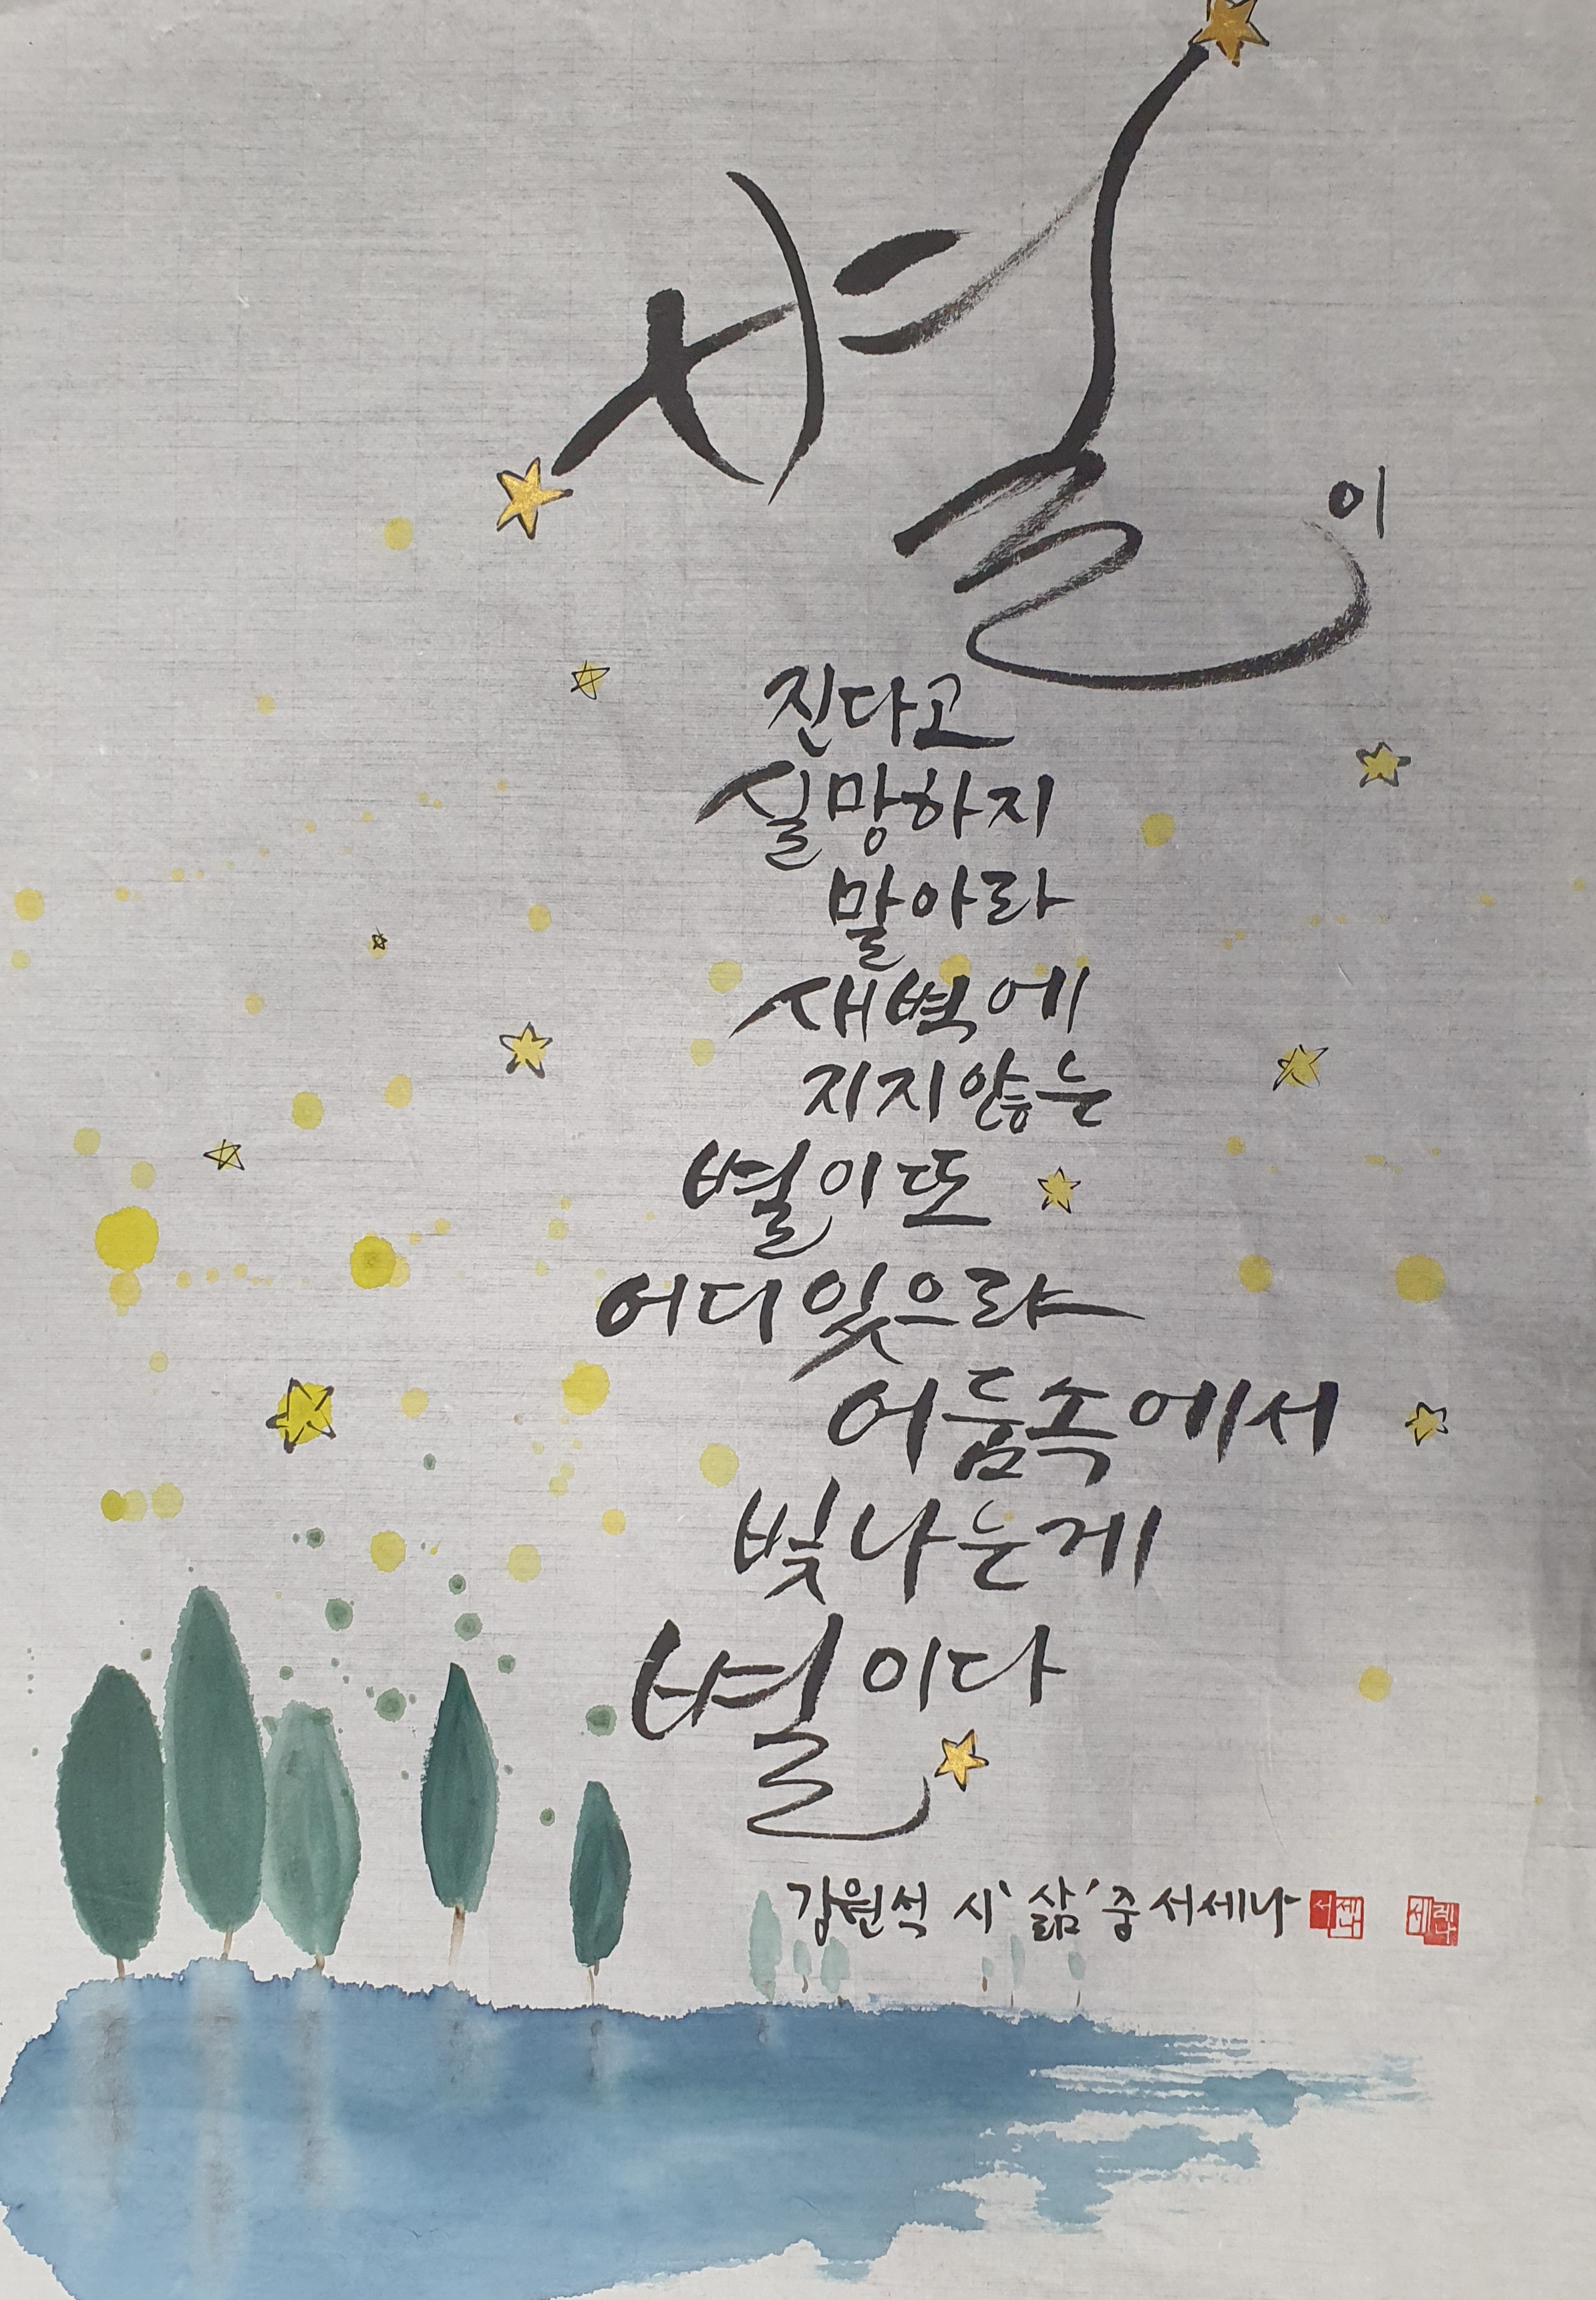 별이
진다고
실망하지
말아라
새벽에
지지않는
별이또
어디있으랴
어둠속에서
빛나는게
별이다
김원석 시 '삶' 중 서세나